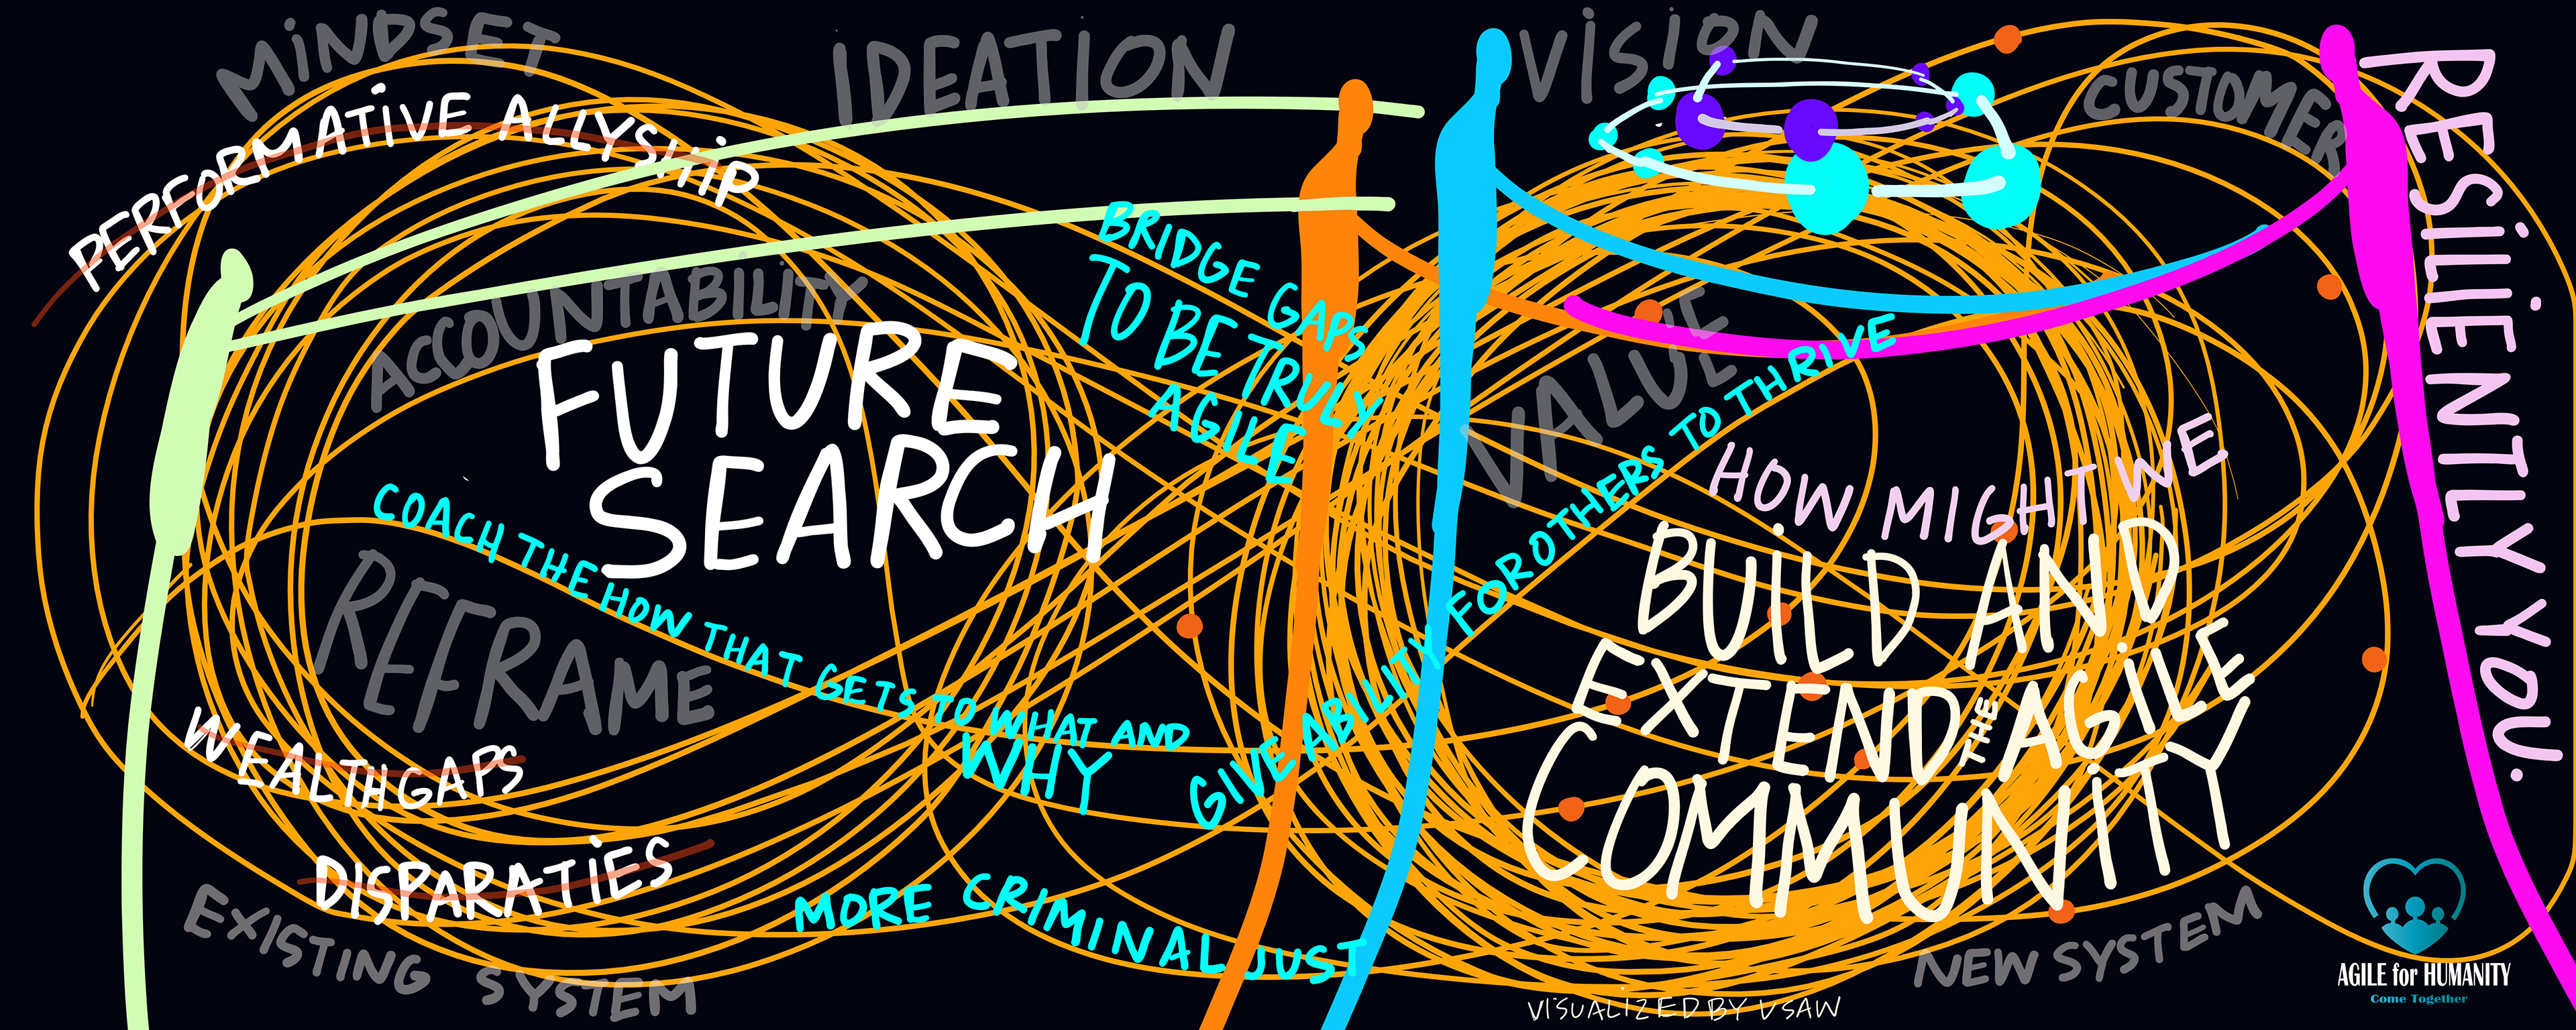 MINDSET
PERFORMATIVE ALLYSHIP
IDEATION
VISION
CUSTOMER
RESILIENTLY YOU.
ACCOUNTABILITY
FUTURE
SEARCH
BRIDGE GAPS
TO BE TRULY
AGILE
VALUE
COACH THE HOW THAT GETS TO WHAT AND
WHY
GIVE ABILITY FOR OTHERS TO THRIVE
HOW MIGHT WE
BUILD AND
EXTEND THE AGILE
COMMUNITY
REFRAME
WEALTH GAPS
DISPARATIES
EXISTING SYSTEM
MORE CRIMINAL JUST
NEW SYSTEM
VISUALIZED BY VSAW
AGILE for HUMANITY
Come Together